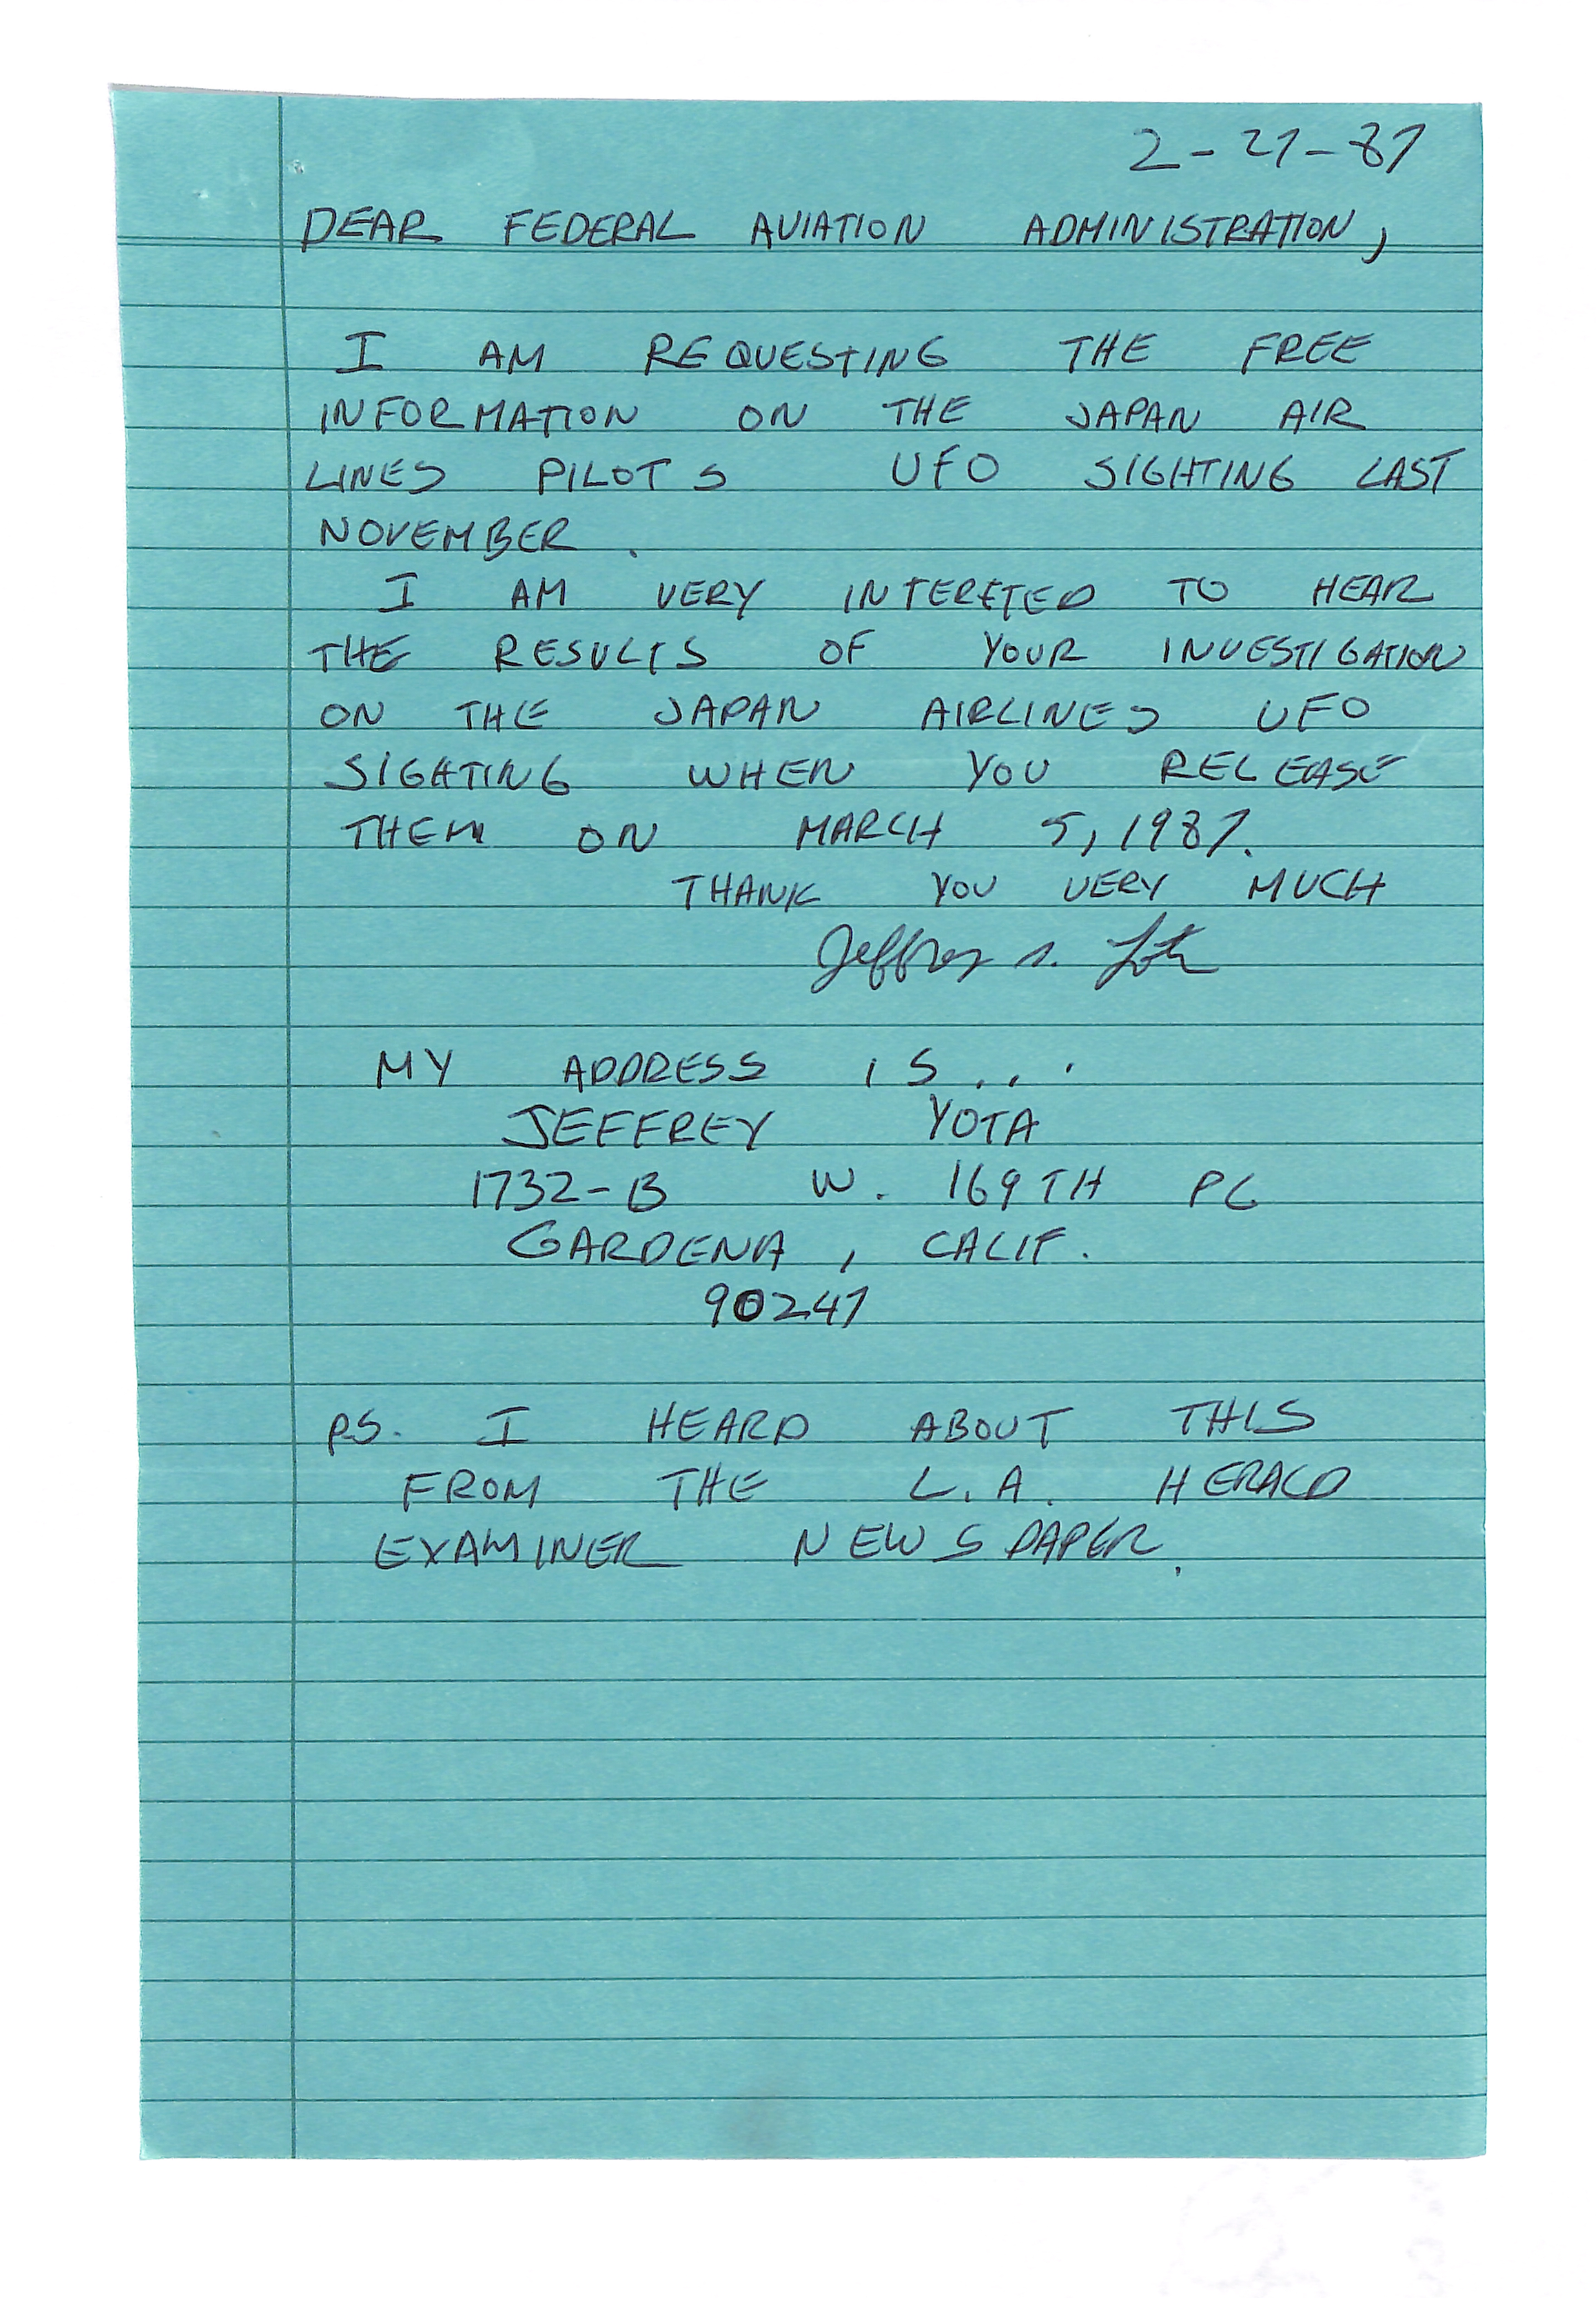 2-27-87
DEAR FEDERAL AVIATION ADMINISTRATION,
I AM REQUESTING THE FREE
INFORMATION ON THE JAPAN AIR
LINES PILOTS UFO SIGHTING LAST
NOVEMBER.
I AM VERY INTERETED TO HEAR
THE RESULTS OF YOUR INVESTIGATION
ON THE JAPAN AIRLINES UFO
SIGHTING WHEN YOU RELEASE
THEM ON MARCH 5, 1987.
THANK YOU VERY MUCH
Jeffrey s.
MY ADDRESS IS...
JEFFREY YOTA
1732-B W. 169TH PL
GARDENA, CALIF.
90247
PS. I HEARD ABOUT THIS
FROM THE L.A. HERALD
EXAMINER NEWSPAPER.